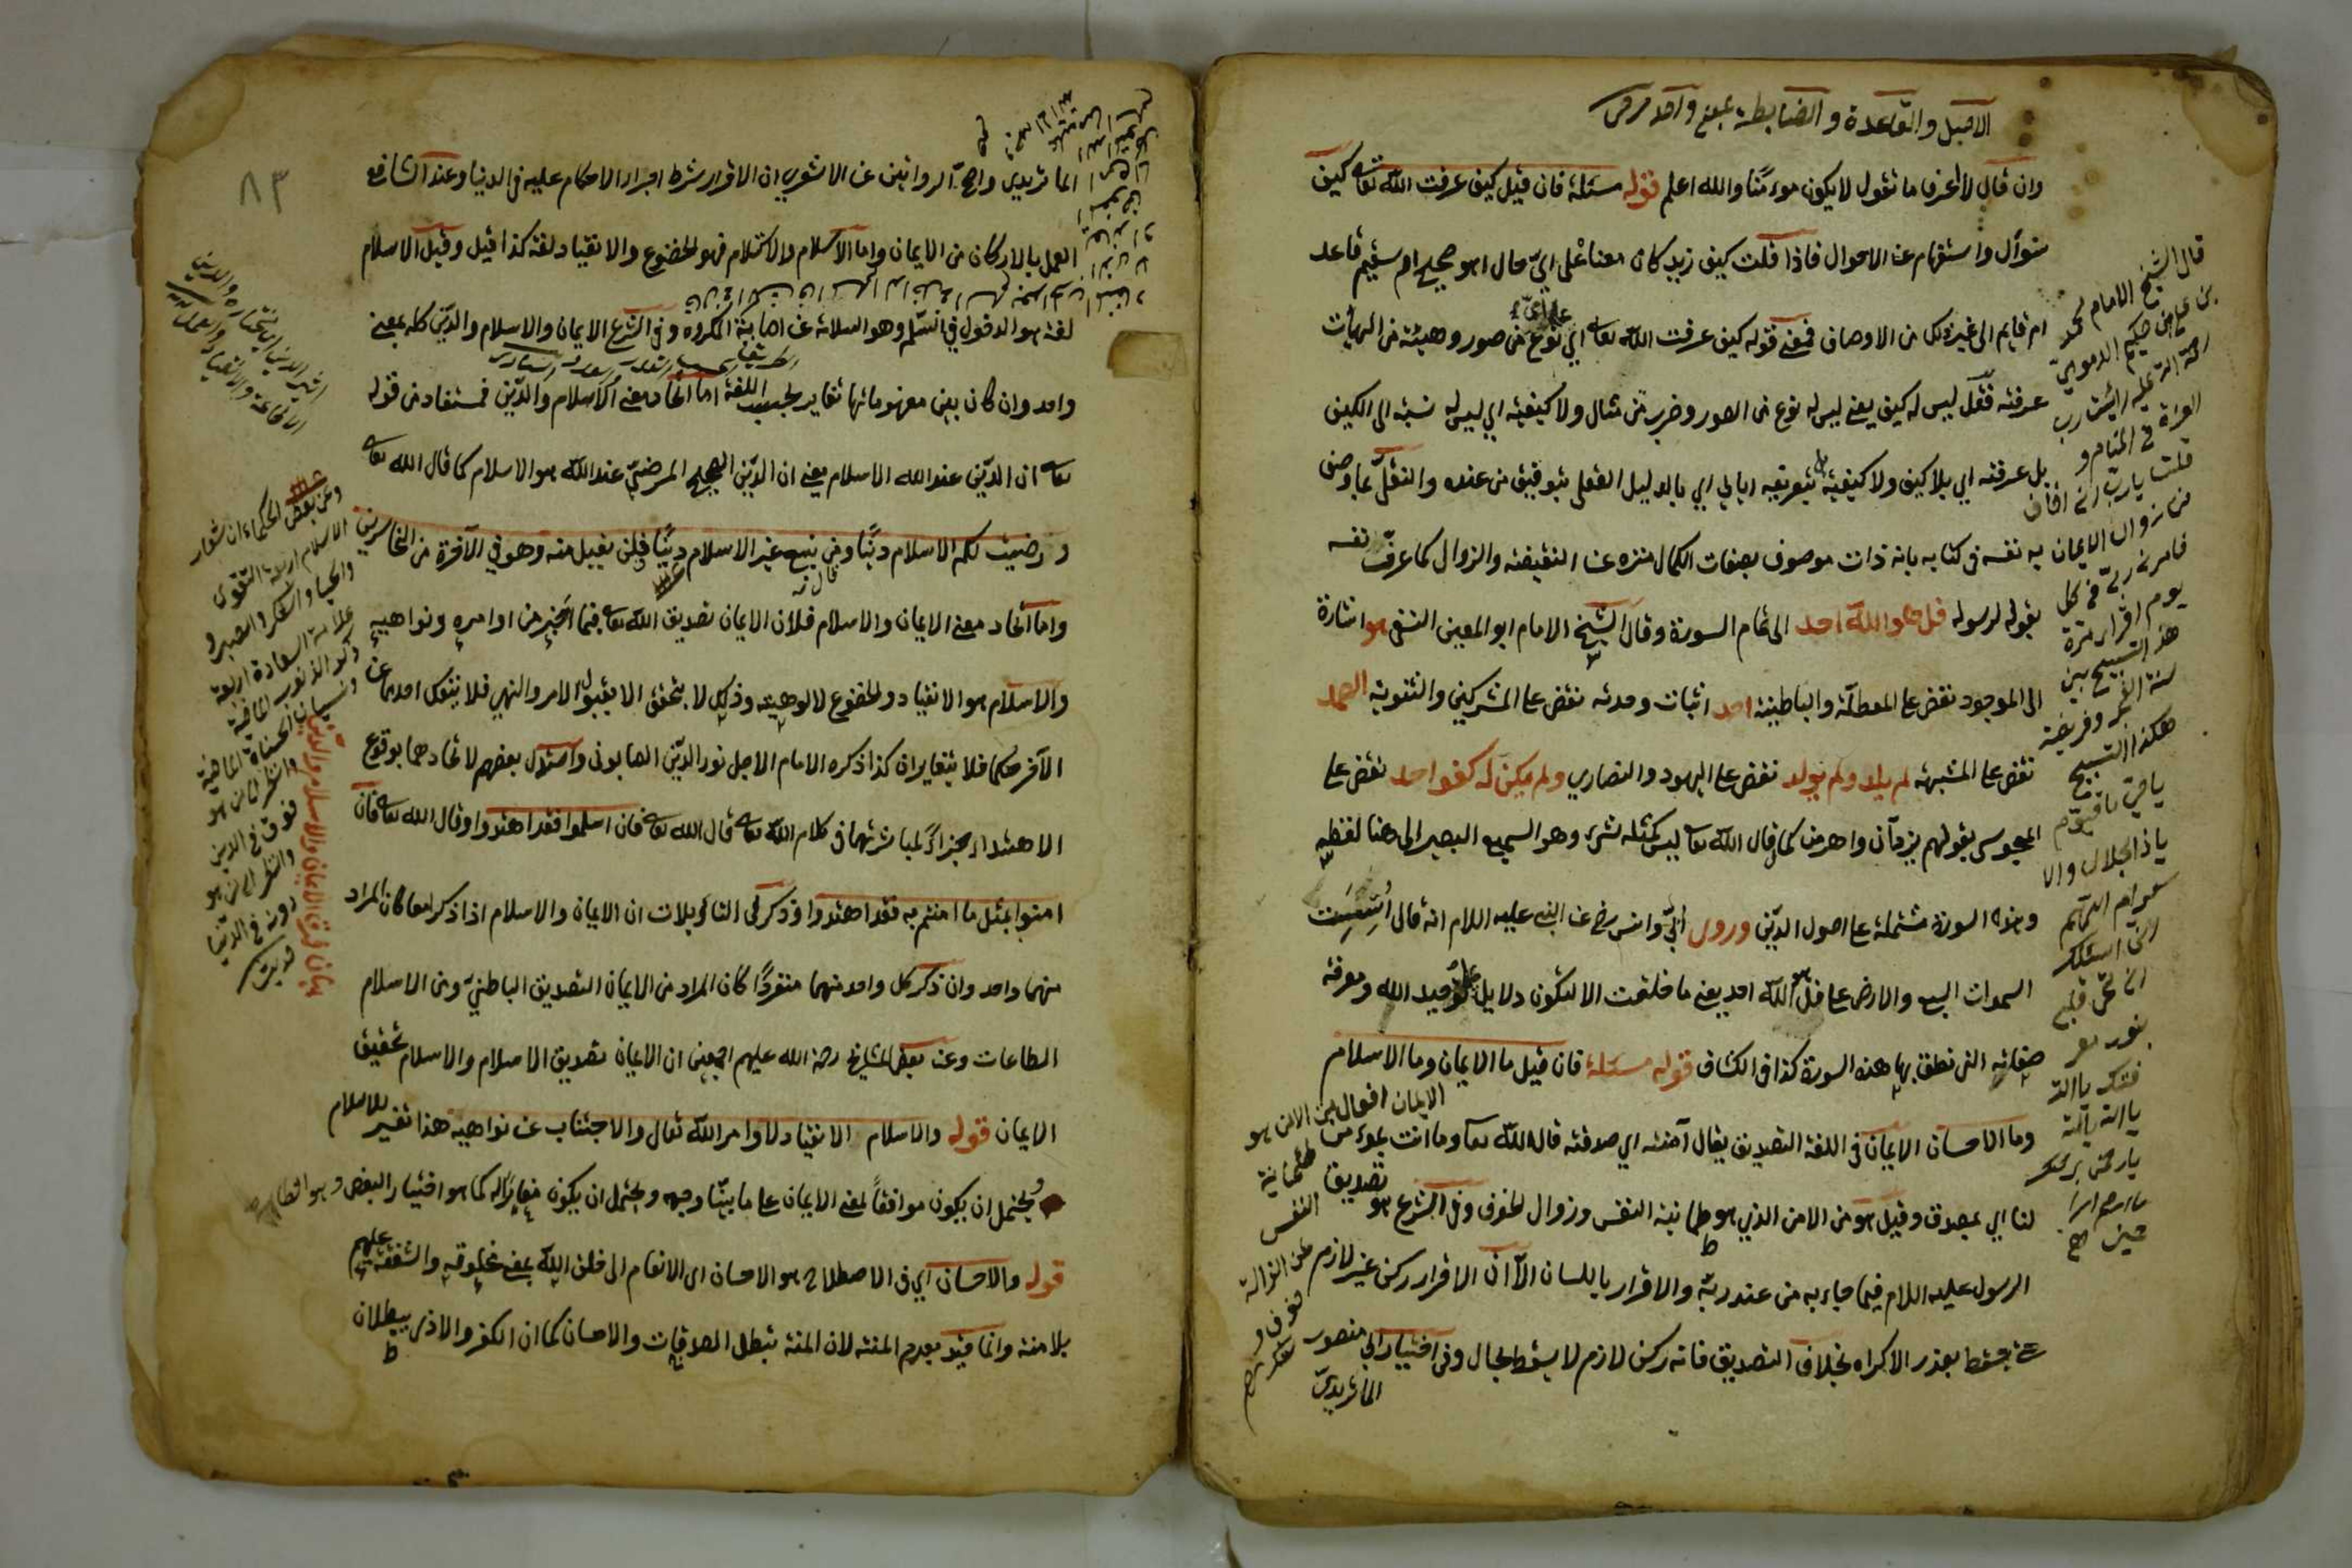 الاصل والقاعدة والضابطة بمعنى واحد
وان قال لا اعرف ما تقول لا يكون مؤمنا والله اعلم قوله مسئلة فان قيل كيف عرفت الله تعا كيف
سؤال واستفهام عن الاحوال فاذا قلت كيف زيد كان معناه على اي حال اهو صحيح ام سقيم قاعد
ام قايم الى غير ذلك من الاوصاف فمعنى قوله كيف عرفت الله تعا على اي نوع من صور وهيئة من الهيأت
عرفته فقل ليس له كيف يعني ليس له نوع من الصور وضرب من مثال ولا كيفية اي ليس له نسبة الى الكيف
بل عرفته اي بلا كيف ولا كيفية بتعريفه اياي اي بالدليل العقلي بتوفيق من عنده والنقل بما وصف
به نفسه في كتابه بانه ذات موصوف بصفات الكمال منزه عن النقيصة والزوال كما عرف نفسه
بقوله لرسوله قل هو الله احد الى تمام السورة وقال الشيخ الامام ابو المعين النسفي هو اشارة
الى الموجود نقض على المعطلة والباطنية احد اثبات وحدته نقض على المشركين والثنوية الصمد
نقض على المشبهة لم يلد ولم يولد نقض على اليهود والنصاري ولم يكن له كفوا احد نقض على
المجوس بقولهم يزدان واهرمن كما قال الله تعا ليس كمثله شيء وهو السميع البصير الى هنا لفظه
وهذه السورة مشتملة على اصول الدين وروى ابي وانس رض عن النبي عليه السلام انه قال اسست
السموات السبع والارض على قل هو الله احد يعني ما خلقت الا لتكون دلايل على توحيد الله ومعرفة
صفاته التي نطق بها هذه السورة كذا في الكشاف قوله مسئلة فان قيل ما الايمان وما الاسلام
وما الاحسان الايمان في اللغة التصديق يقال آمنته اي صدقته قال الله تعا وما انت بمؤمن
لنا اي بمصدق وقيل هو من الامن الذي هو طمانينة النفس وزوال الخوف وفي الشرع هو تصديق
الرسول عليه السلام فيما جاء به من عند ربه والاقرار باللسان الا ان الاقرار ركن غير لازم
يسقط بعذر الاكراه بخلاف التصديق فانه ركن لازم لا يسقط بحال وفي اختيار ابي منصور
الماتريدي
قال الشيخ الامام محمد
بن علي بن حكيم الترمذي
رحمة الله عليه رايت رب
العزة في المنام و
قلت يا رب اني اخاف
من زوال الايمان
فامرني ربي في كل
يوم اقرا مرة
هذا التسبيح بين
سنة الفجر وفريضته
هكذا التسبيح
يا حي يا قيوم
يا ذا الجلال والا
كرام اللهم
اني اسئلك
ان تحي قلبي
بنور معر
فتك يا الله
يا الله يا الله
الايمان افعال من الامن هو
طمانية
النفس
عن ازالة
خوف و
٨٣
الماتريدي واصح الروايتين عن الاشعري ان الاقرار شرط اجراء الاحكام عليه في الدنيا وعند الشافعي
العمل بالاركان من الايمان واما الاسلام والاستسلام فهو الخضوع والانقياد لغة كذا قيل وقيل الاسلام
لغة هو الدخول في السلم وهو السلامة عن اصابة المكروه وفي الشرع الايمان والاسلام والدين كله بمعنى
واحد وان كان بين مفهوماتها تغاير بحسب اللغة اما اتحاد معنى الاسلام والدين فمستفاد من قوله
تعا ان الدين عند الله الاسلام يعني ان الدين الصحيح المرضي عند الله هو الاسلام كما قال الله تعا
ورضيت لكم الاسلام دينا ومن يبتغ غير الاسلام دينا فلن يقبل منه وهو في الآخرة من الخاسرين
واما اتحاد معنى الايمان والاسلام فلان الايمان تصديق الله تعا فيما اخبر من اوامره ونواهيه
والاسلام هو الانقياد والخضوع لالوهيته وذلك لا يتحقق الا بقبول الامر والنهي فلا ينفك احدهما عن
الآخر حكما فلا يتغايران كذا ذكره الامام الاجل نور الدين الصابوني واستدل بعضهم لاتحادهما بوقوع
الاهتداء جزاء لمباشرتهما في كلام الله تعا قال الله تعا فان اسلموا فقد اهتدوا وقال الله تعا فان
امنوا بمثل ما امنتم به فقد اهتدوا وذكر في التاويلات ان الايمان والاسلام اذا ذكرا معا كان المراد
منهما واحد وان ذكر كل واحد منهما منفردا كان المراد من الايمان التصديق الباطني ومن الاسلام
الطاعات وعن بعض المشايخ رحمة الله عليهم اجمعين ان الايمان تصديق الاسلام والاسلام تحقيق
الايمان قوله والاسلام الانقياد لاوامر الله تعالى والاجتناب عن نواهيه هذا تفسير للاسلام
ويحتمل ان يكون موافقا لمعنى الايمان على ما بينا وجهه ويحتمل ان يكون مغايرا له كما هو اختيار البعض وهو الظاهر
قوله والاحسان اي في الاصطلاح هو الاحسان اى الانعام الى خلق الله بمعنى مخلوقه والشفقة عليهم
بلا منة وانما قيد بعدم المنة لان المنة تبطل الصدقات والاحسان كما ان الكفر والاذى يبطلان
وعن بعض الحكماء ان شعار
الاسلام اربعة التقوى
والحياء والشكر والصبر و
علامة السعادة اربعة
ذكر الذنوب الماضية
ونسيان الحسنات الماضية
والنظر الى من هو
فوق في الدين
والنظر الى من هو
دونه في الدنيا
بيان فرق الايمان والاسلام والدين